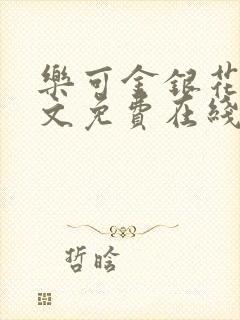 樂可金銀花
文免費在綫
哲晗